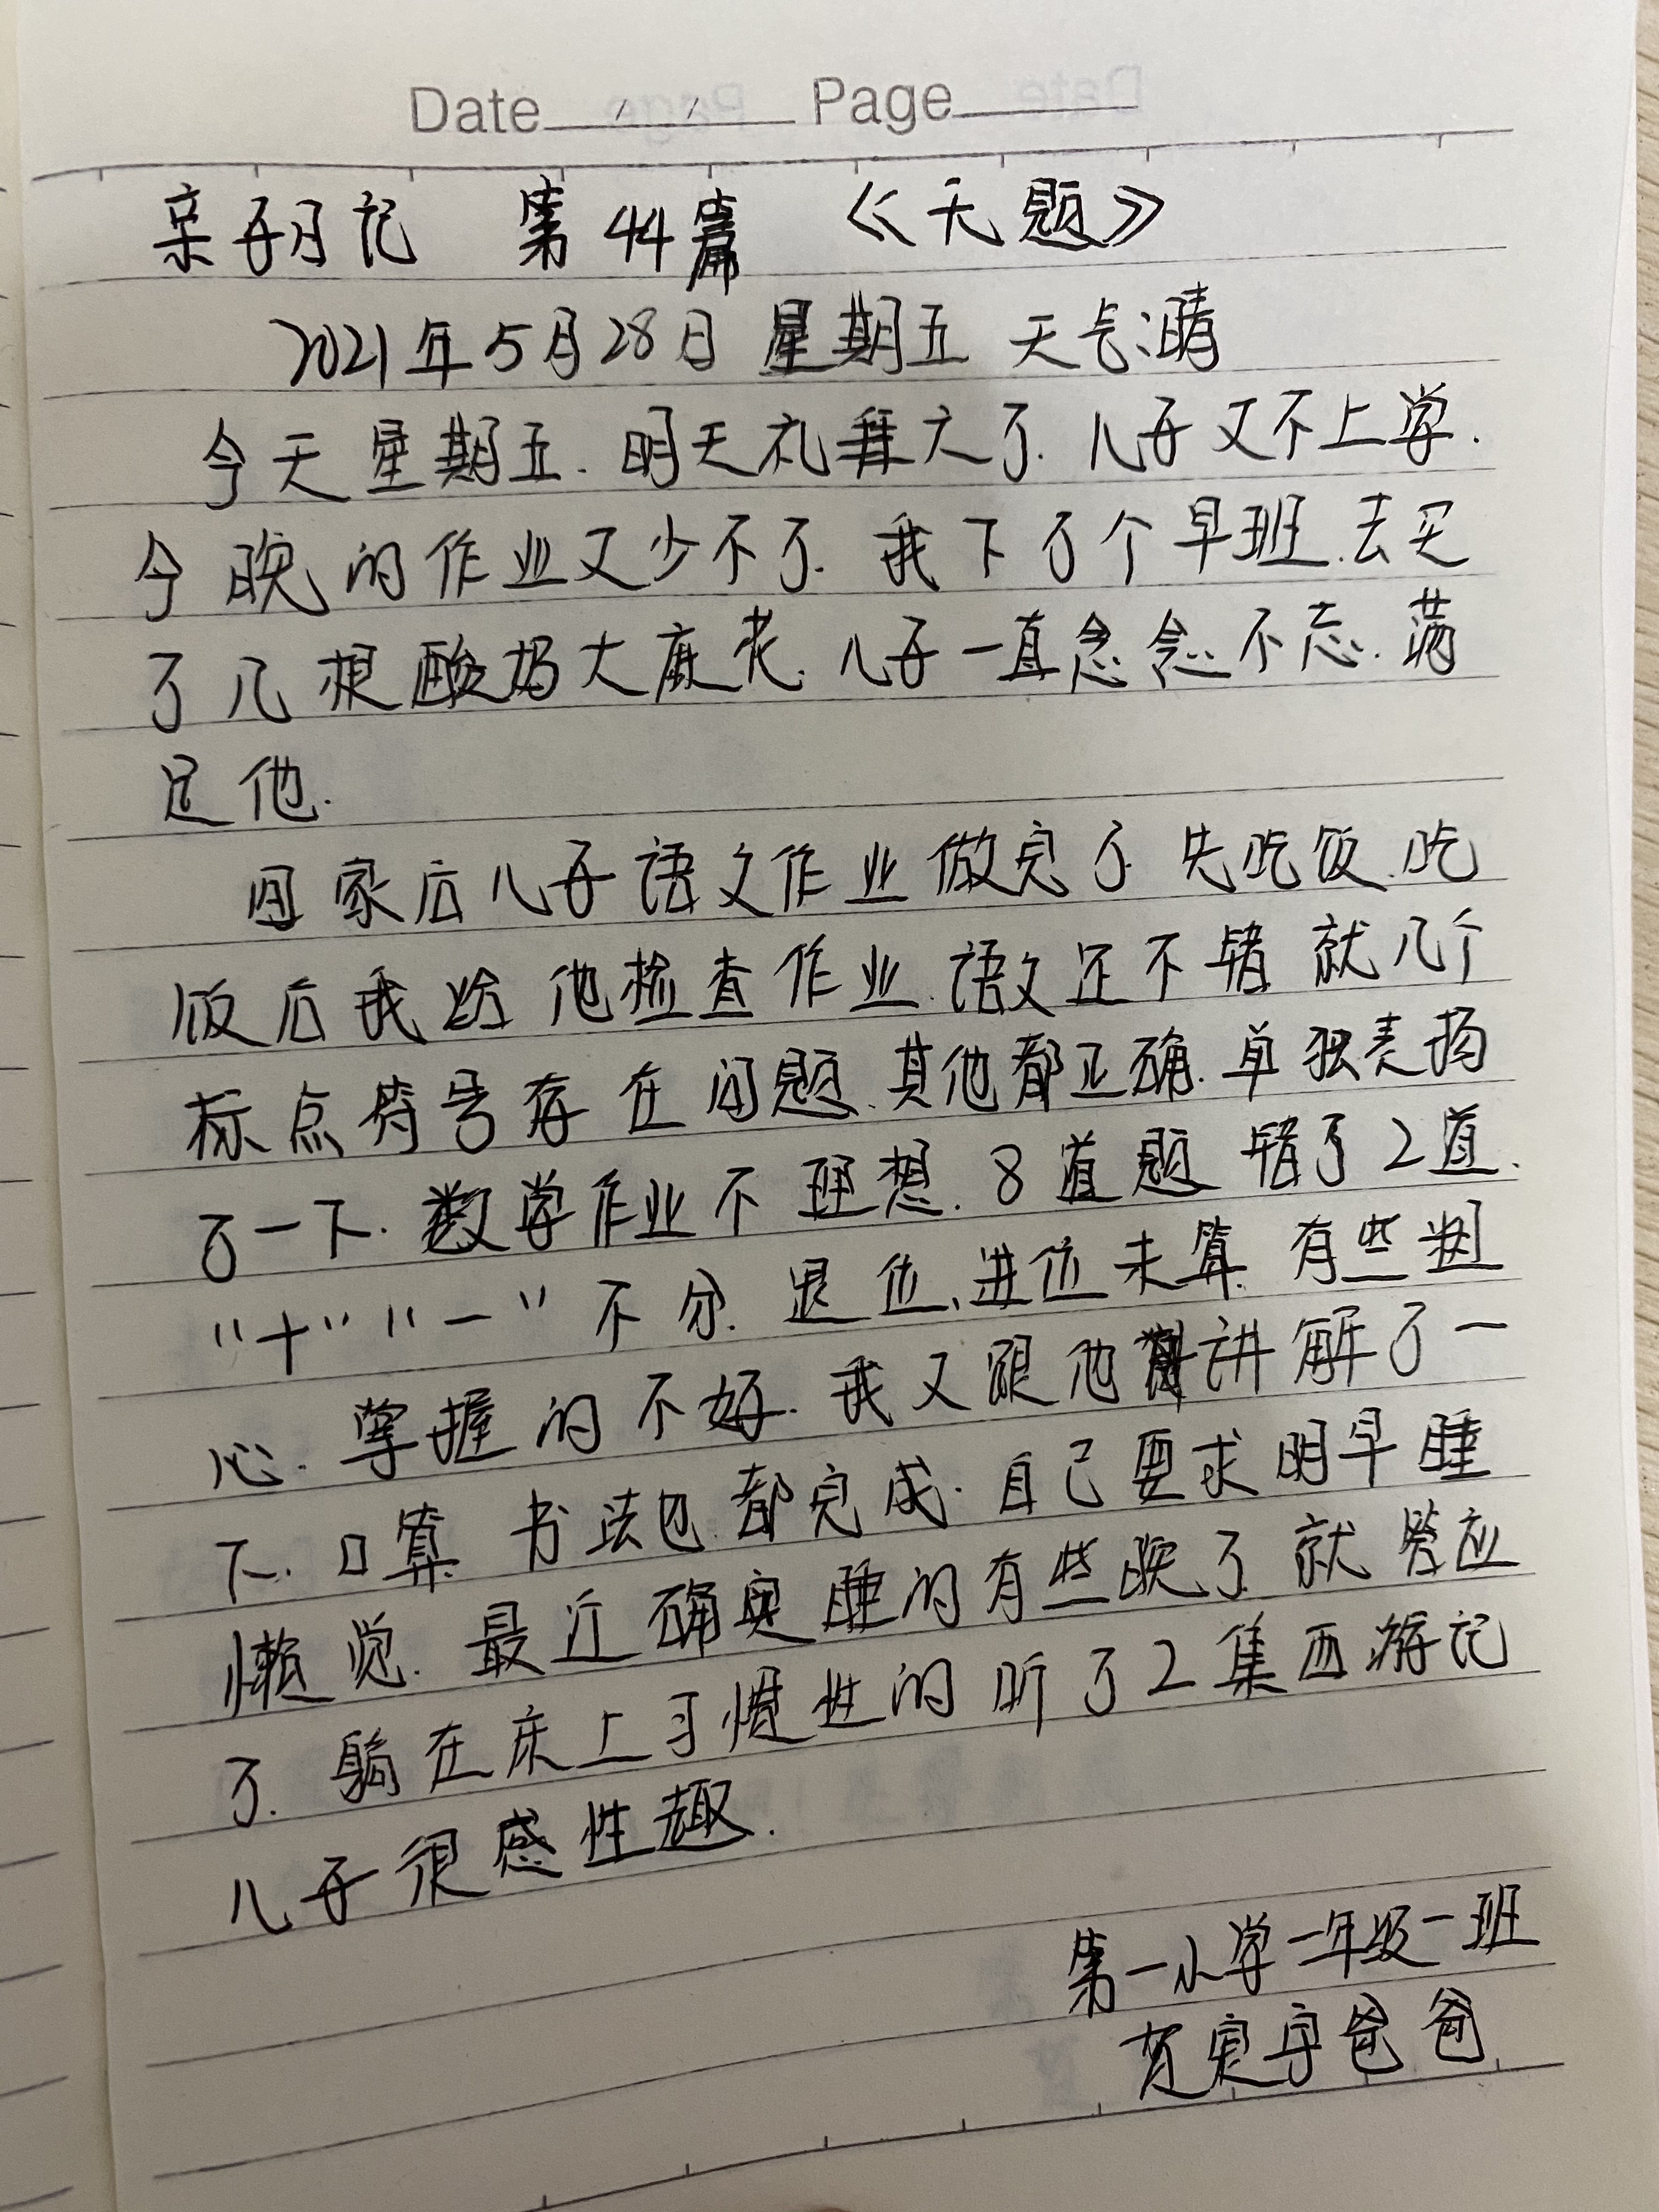 Date / / Page
亲子日记 第44篇 《无题》
2021年5月28日 星期五 天气:晴
今天星期五.明天礼拜六了.儿子又不上学.
今晚的作业又少不了.我下了个早班.去买
了几根酸奶大麻花.儿子一直念念不忘.满
足他.
回家后儿子语文作业做完了.先吃饭.吃
饭后我给他检查作业.语文还不错 就几个
标点符号存在问题.其他都正确.单独表扬
了一下.数学作业不理想.8道题 错了2道.
"+" "-"不分.退位、进位未算.有些粗
心.掌握的不好.我又跟他讲解了一
下.口算 书法也都完成.自己要求明早睡
懒觉.最近确实睡的有些晚了.就答应
了.躺在床上习惯性的听了2集西游记
儿子很感性趣.
第一小学一年级一班
宇爸爸